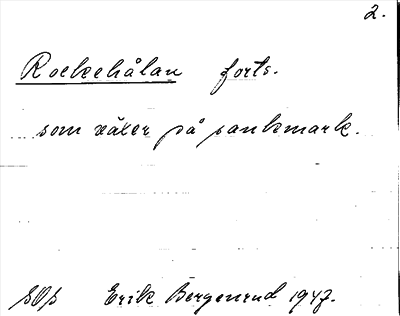 2.
Rockehålan forts.
som växer på sankmark.
Erik Bergenrud 1947.